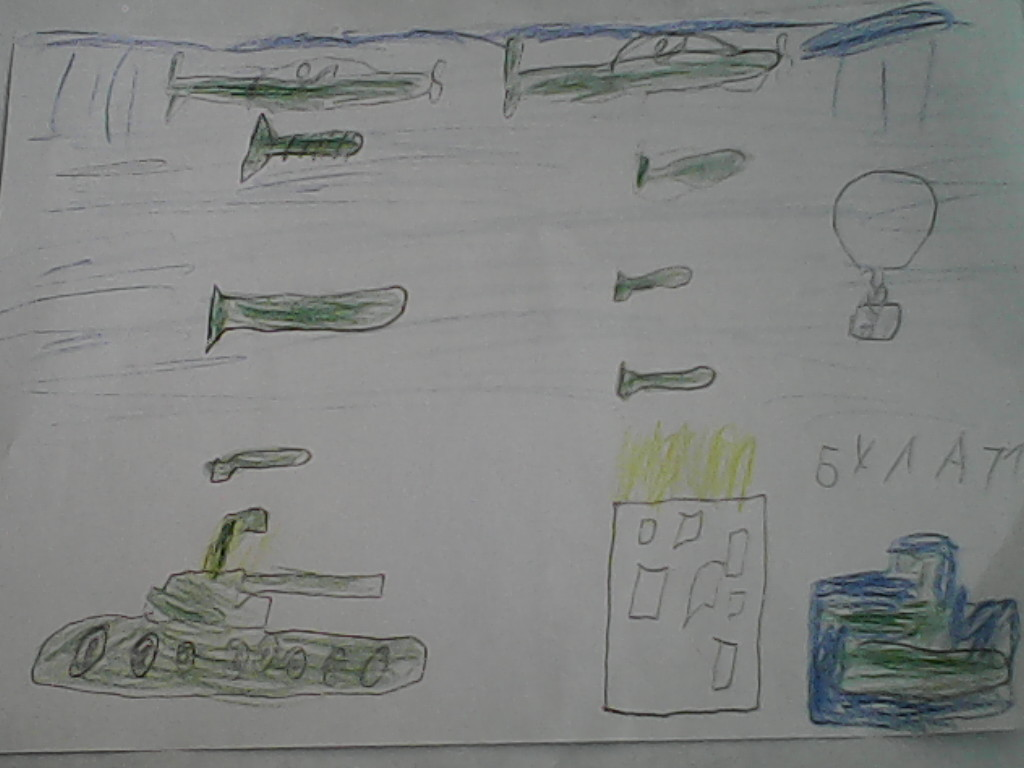 БУЛАТ